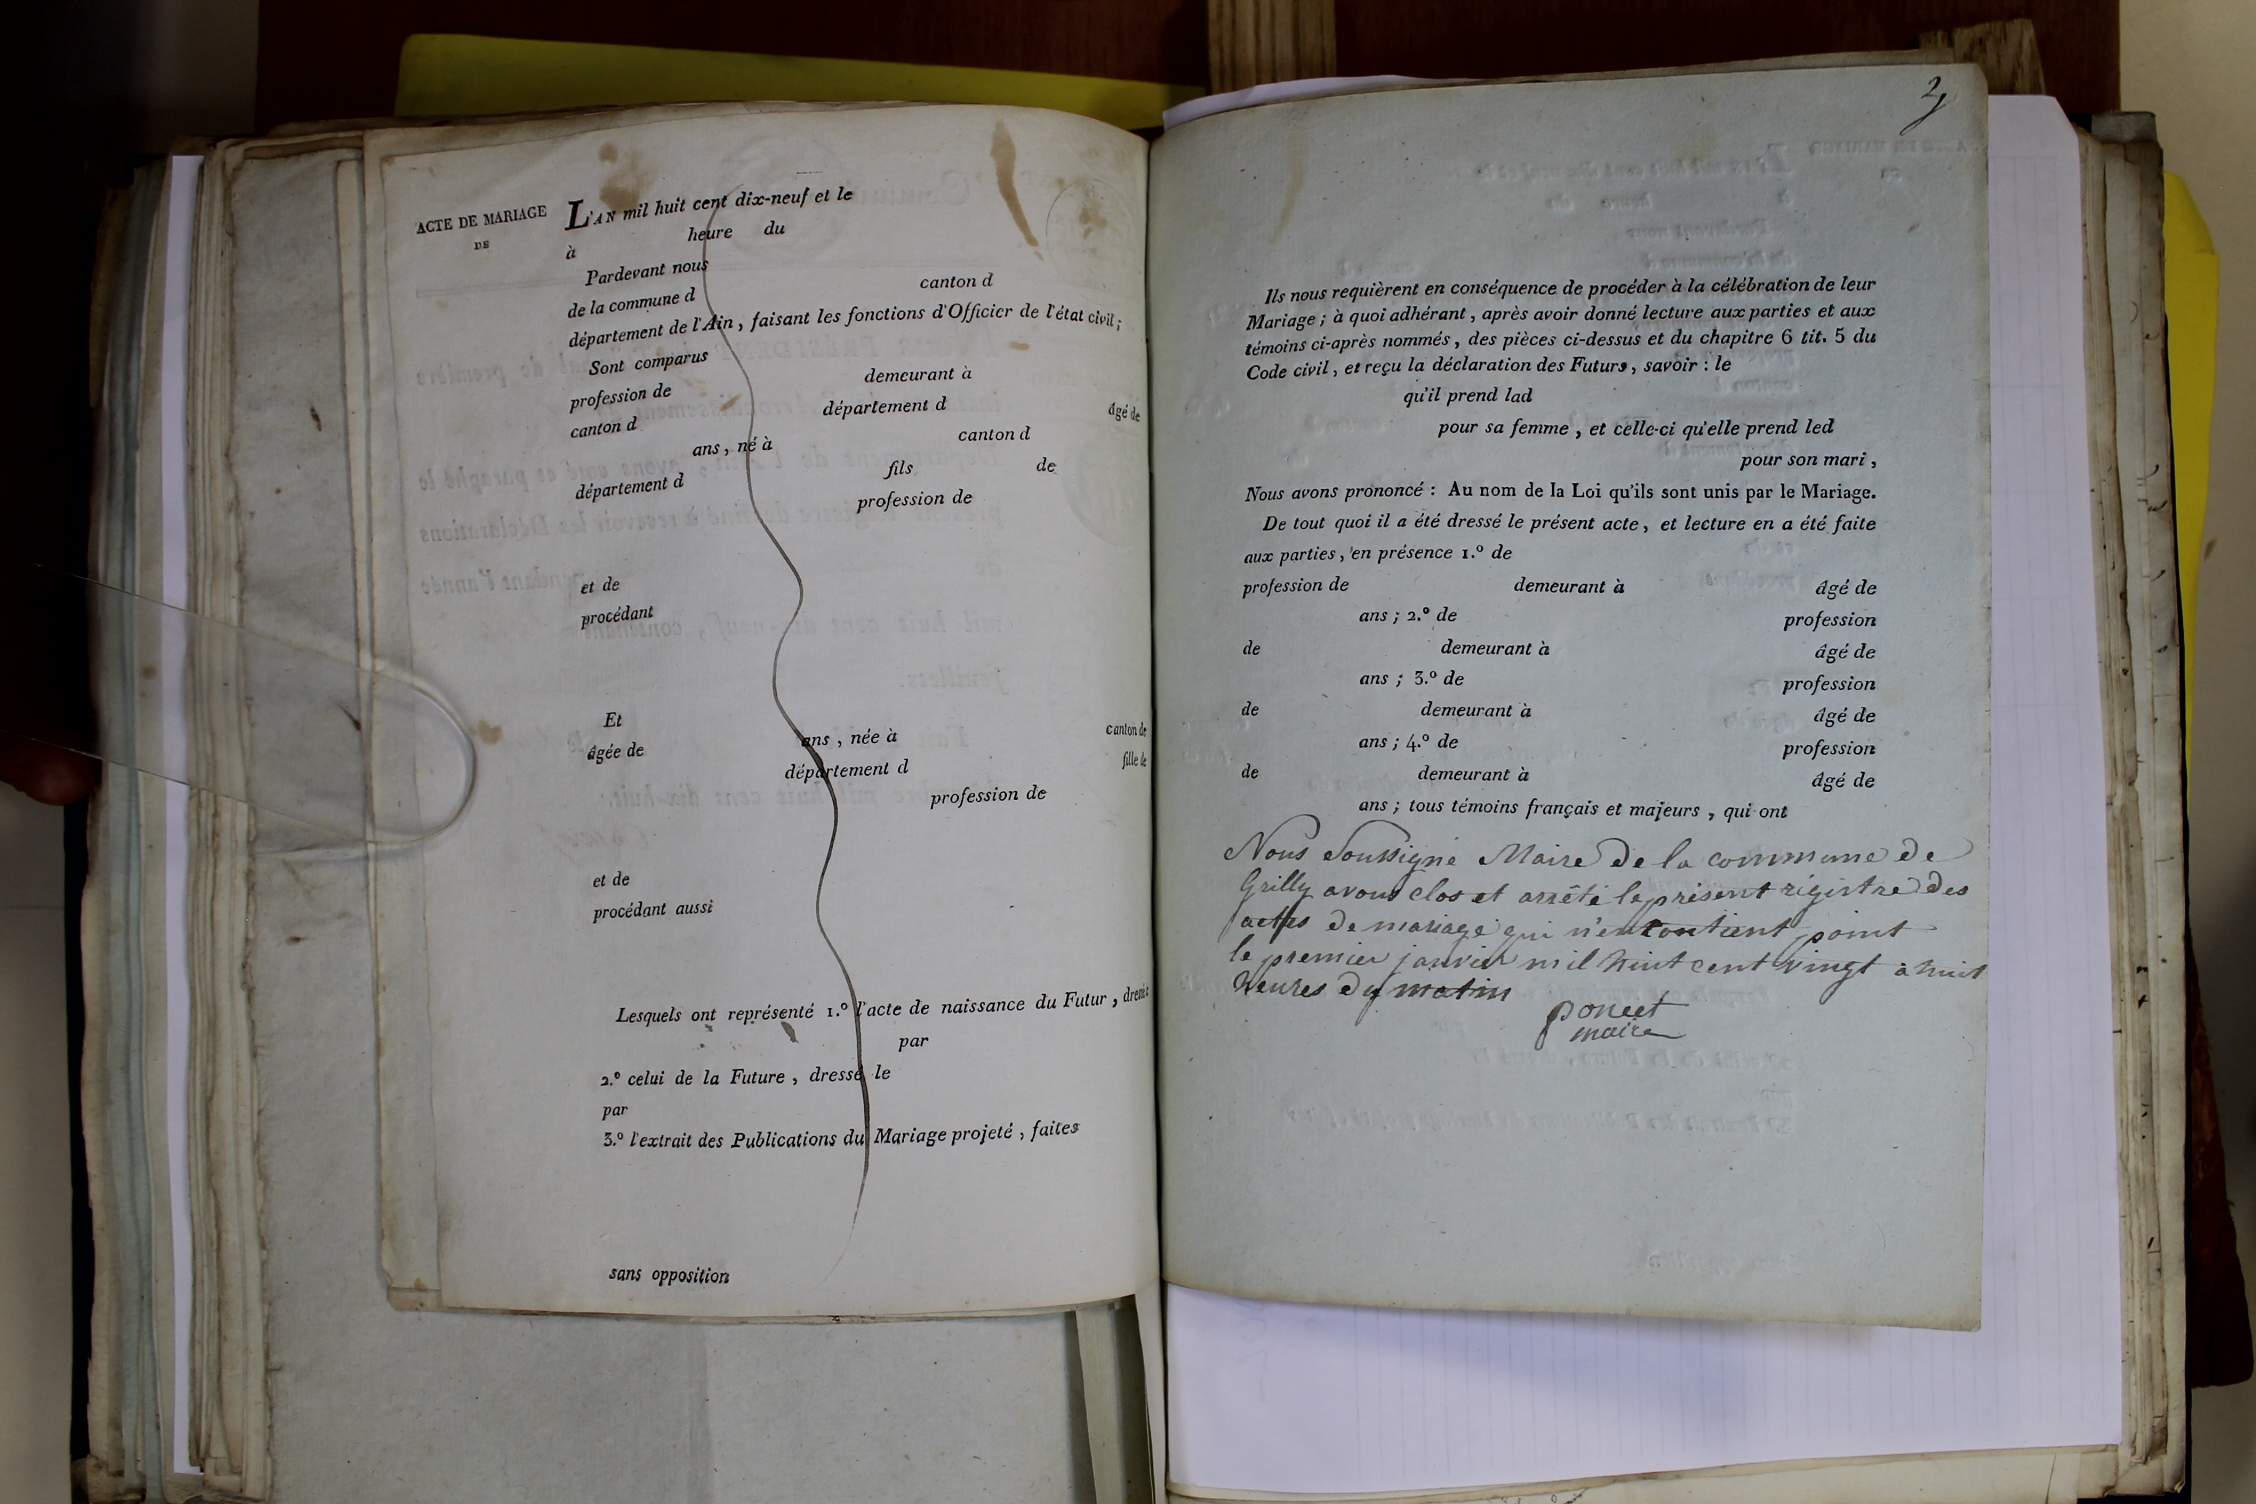 ACTE DE MARIAGE
DE
L'AN mil huit cent dix-neuf et le
à heure du
Pardevant nous
de la commune d canton d
département de l'Ain, faisant les fonctions d'Officier de l'état civil;
Sont comparus
profession de demeurant à
canton d département d âgé de
ans, né à canton d
département d fils de
profession de
et de
procédant
Et
âgée de ans, née à canton de
département d fille de
profession de
et de
procédant aussi
Lesquels ont représenté 1.º l'acte de naissance du Futur, dressé
par
2.º celui de la Future, dressé le
par
3.º l'extrait des Publications du Mariage projeté, faites
sans opposition
Ils nous requièrent en conséquence de procéder à la célébration de leur
Mariage; à quoi adhérant, après avoir donné lecture aux parties et aux
témoins ci-après nommés, des pièces ci-dessus et du chapitre 6 tit. 5 du
Code civil, et reçu la déclaration des Futurs, savoir: le
qu'il prend lad
pour sa femme, et celle-ci qu'elle prend led
pour son mari,
Nous avons prononcé: Au nom de la Loi qu'ils sont unis par le Mariage.
De tout quoi il a été dressé le présent acte, et lecture en a été faite
aux parties, en présence 1.º de
profession de demeurant à âgé de
ans; 2.º de profession
de demeurant à âgé de
ans; 3.º de profession
de demeurant à âgé de
ans; 4.º de profession
de demeurant à âgé de
ans; tous témoins français et majeurs, qui ont
Nous soussigné Maire de la commune de
Grilly avons clos et arrêté le présent régistre des
actes de mariage qui n'en contient point
le premier janvier mil huit cent vingt à huit
heures du matin
poncet
maire